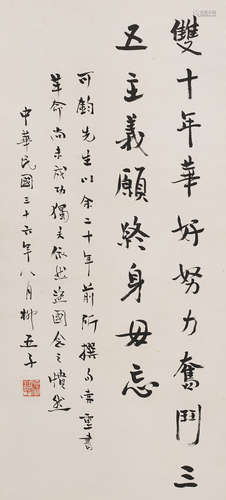 雙十年華好努力奮鬥三
民主義願終身毋忘
可鈞先生以余二十年前所撰句索重書
革命尚未成功獨夫依然盜國念之憤然
中華民國三十六年八月柳亞子